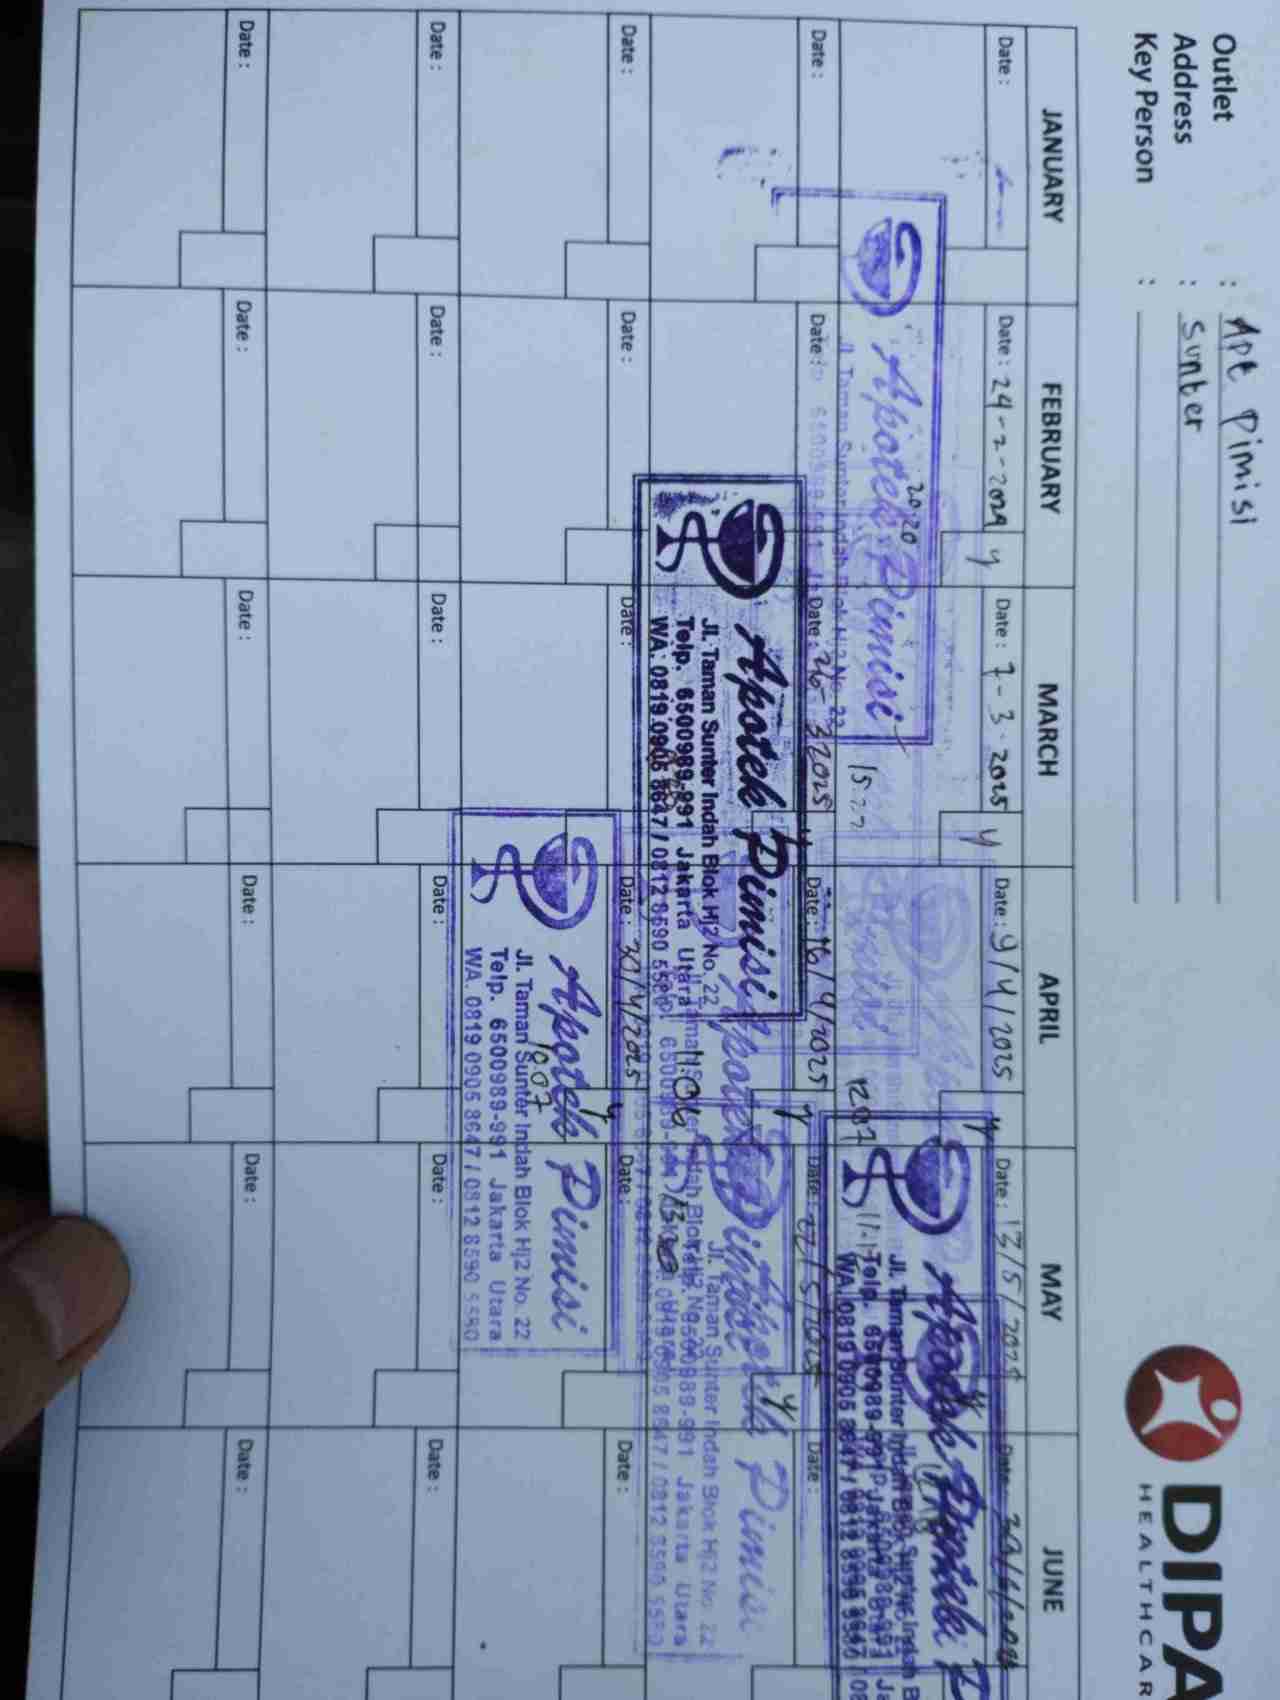 Outlet : Apt Pimisi
Address : Sunter
Key Person :
DIPA
HEALTHCAR
JANUARY FEBRUARY MARCH APRIL MAY JUNE
Date : Date : 24-2-2029 Date : 7-3-2025 Date : 9/4/2025 Date : 13/5/2025 Date :
y y y y
Apotek Pimisi
Jl. Taman Sunter Indah Blok Hj2 No. 22
20.20
12.07
Apotek Pimisi
Jl. Taman Sunter Indah Blok Hj2 No. 22
Telp. 6500989-991 Jakarta Utara
WA. 0819 0905 8647 / 0812 8590 5580
Date : Date : Date : 26-3 2025 Date : 16/4/2025 Date : 22/5/2025 Date :
y y y
Apotek Pimisi
Jl. Taman Sunter Indah Blok Hj2 No. 22
Telp. 6500989-991 Jakarta Utara
WA. 0819 0905 8647 / 0812 8590 5580
11.06
13.20
Apotek Pimisi
Jl. Taman Sunter Indah Blok Hj2 No. 22
6500989-991 Jakarta Utara
0819 0905 8647 / 0812 8590 5580
Date : Date : Date : Date : 30/4/2025 Date : Date :
y
Apotek Pimisi
Jl. Taman Sunter Indah Blok Hj2 No. 22
Telp. 6500989-991 Jakarta Utara
WA. 0819 0905 8647 / 0812 8590 5580
10.07
Date : Date : Date : Date : Date : Date :
Date : Date : Date : Date : Date : Date :